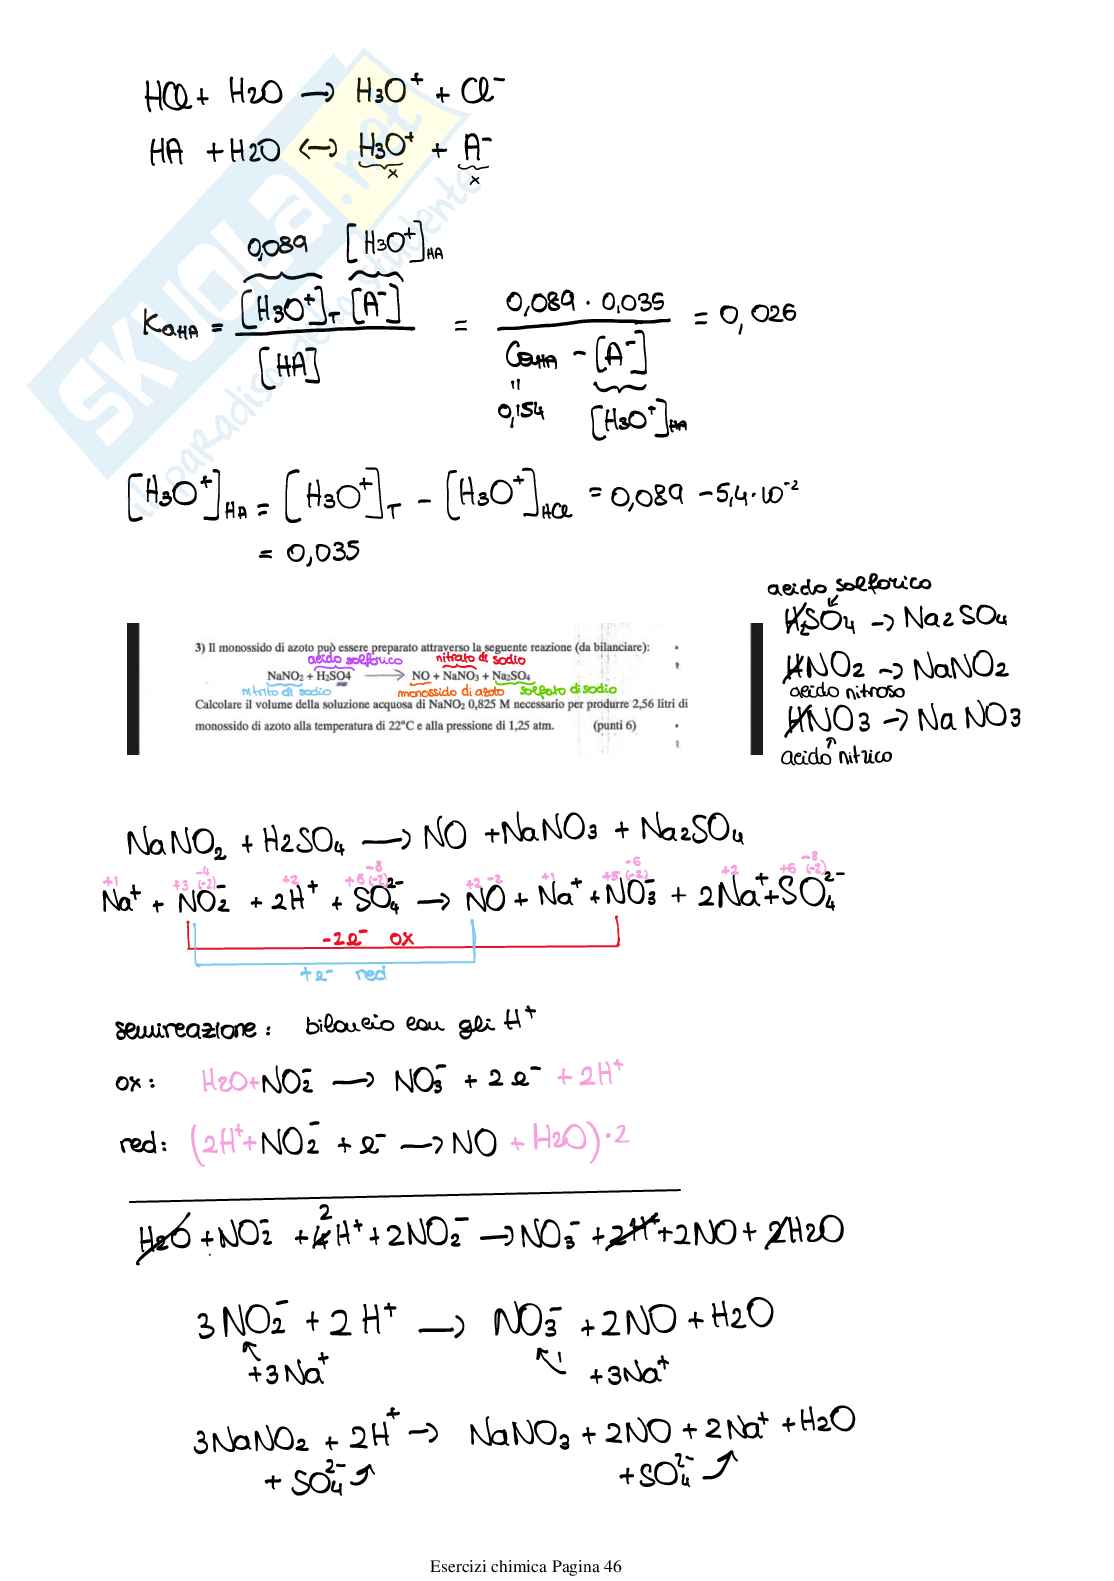 HCl + H2O → H3O⁺ + Cl⁻
HA + H2O ↔ H3O⁺ + A⁻
x x
SKUOLA.net
il paradiso dello studente
0,089 [H3O⁺]HA
KaHA = [H3O⁺]T [A⁻] / [HA] = 0,089 · 0,035 / CaHA - [A⁻] = 0,026
"
0,154 [H3O⁺]HA
[H3O⁺]HA = [H3O⁺]T - [H3O⁺]HCl = 0,089 - 5,4·10⁻²
= 0,035
acido solforico
H2SO4 → Na2SO4
HNO2 → NaNO2
acido nitroso
HNO3 → NaNO3
acido nitrico
3) Il monossido di azoto può essere preparato attraverso la seguente reazione (da bilanciare):
acido solforico nitrato di sodio
NaNO2 + H2SO4 → NO + NaNO3 + Na2SO4
nitrito di sodio monossido di azoto solfato di sodio
Calcolare il volume della soluzione acquosa di NaNO2 0,825 M necessario per produrre 2,56 litri di
monossido di azoto alla temperatura di 22°C e alla pressione di 1,25 atm. (punti 6)
NaNO2 + H2SO4 → NO + NaNO3 + Na2SO4
-4 -8 -6 -8
+1 +3 (-2) +2 +6 (-2) +2 -2 +1 +5 (-2) +2 +6 (-2)
Na⁺ + NO2⁻ + 2H⁺ + SO4²⁻ → NO + Na⁺ + NO3⁻ + 2Na⁺ + SO4²⁻
-2e⁻ ox
+e⁻ red
semireazione: bilancio con gli H⁺
ox: H2O + NO2⁻ → NO3⁻ + 2e⁻ + 2H⁺
red: (2H⁺ + NO2⁻ + e⁻ → NO + H2O)·2
2
H2O + NO2⁻ + 4H⁺ + 2NO2⁻ → NO3⁻ + 2H⁺ + 2NO + 2H2O
3NO2⁻ + 2H⁺ → NO3⁻ + 2NO + H2O
+3Na⁺ +3Na⁺
3NaNO2 + 2H⁺ → NaNO3 + 2NO + 2Na⁺ + H2O
+ SO4²⁻ + SO4²⁻
Esercizi chimica Pagina 46